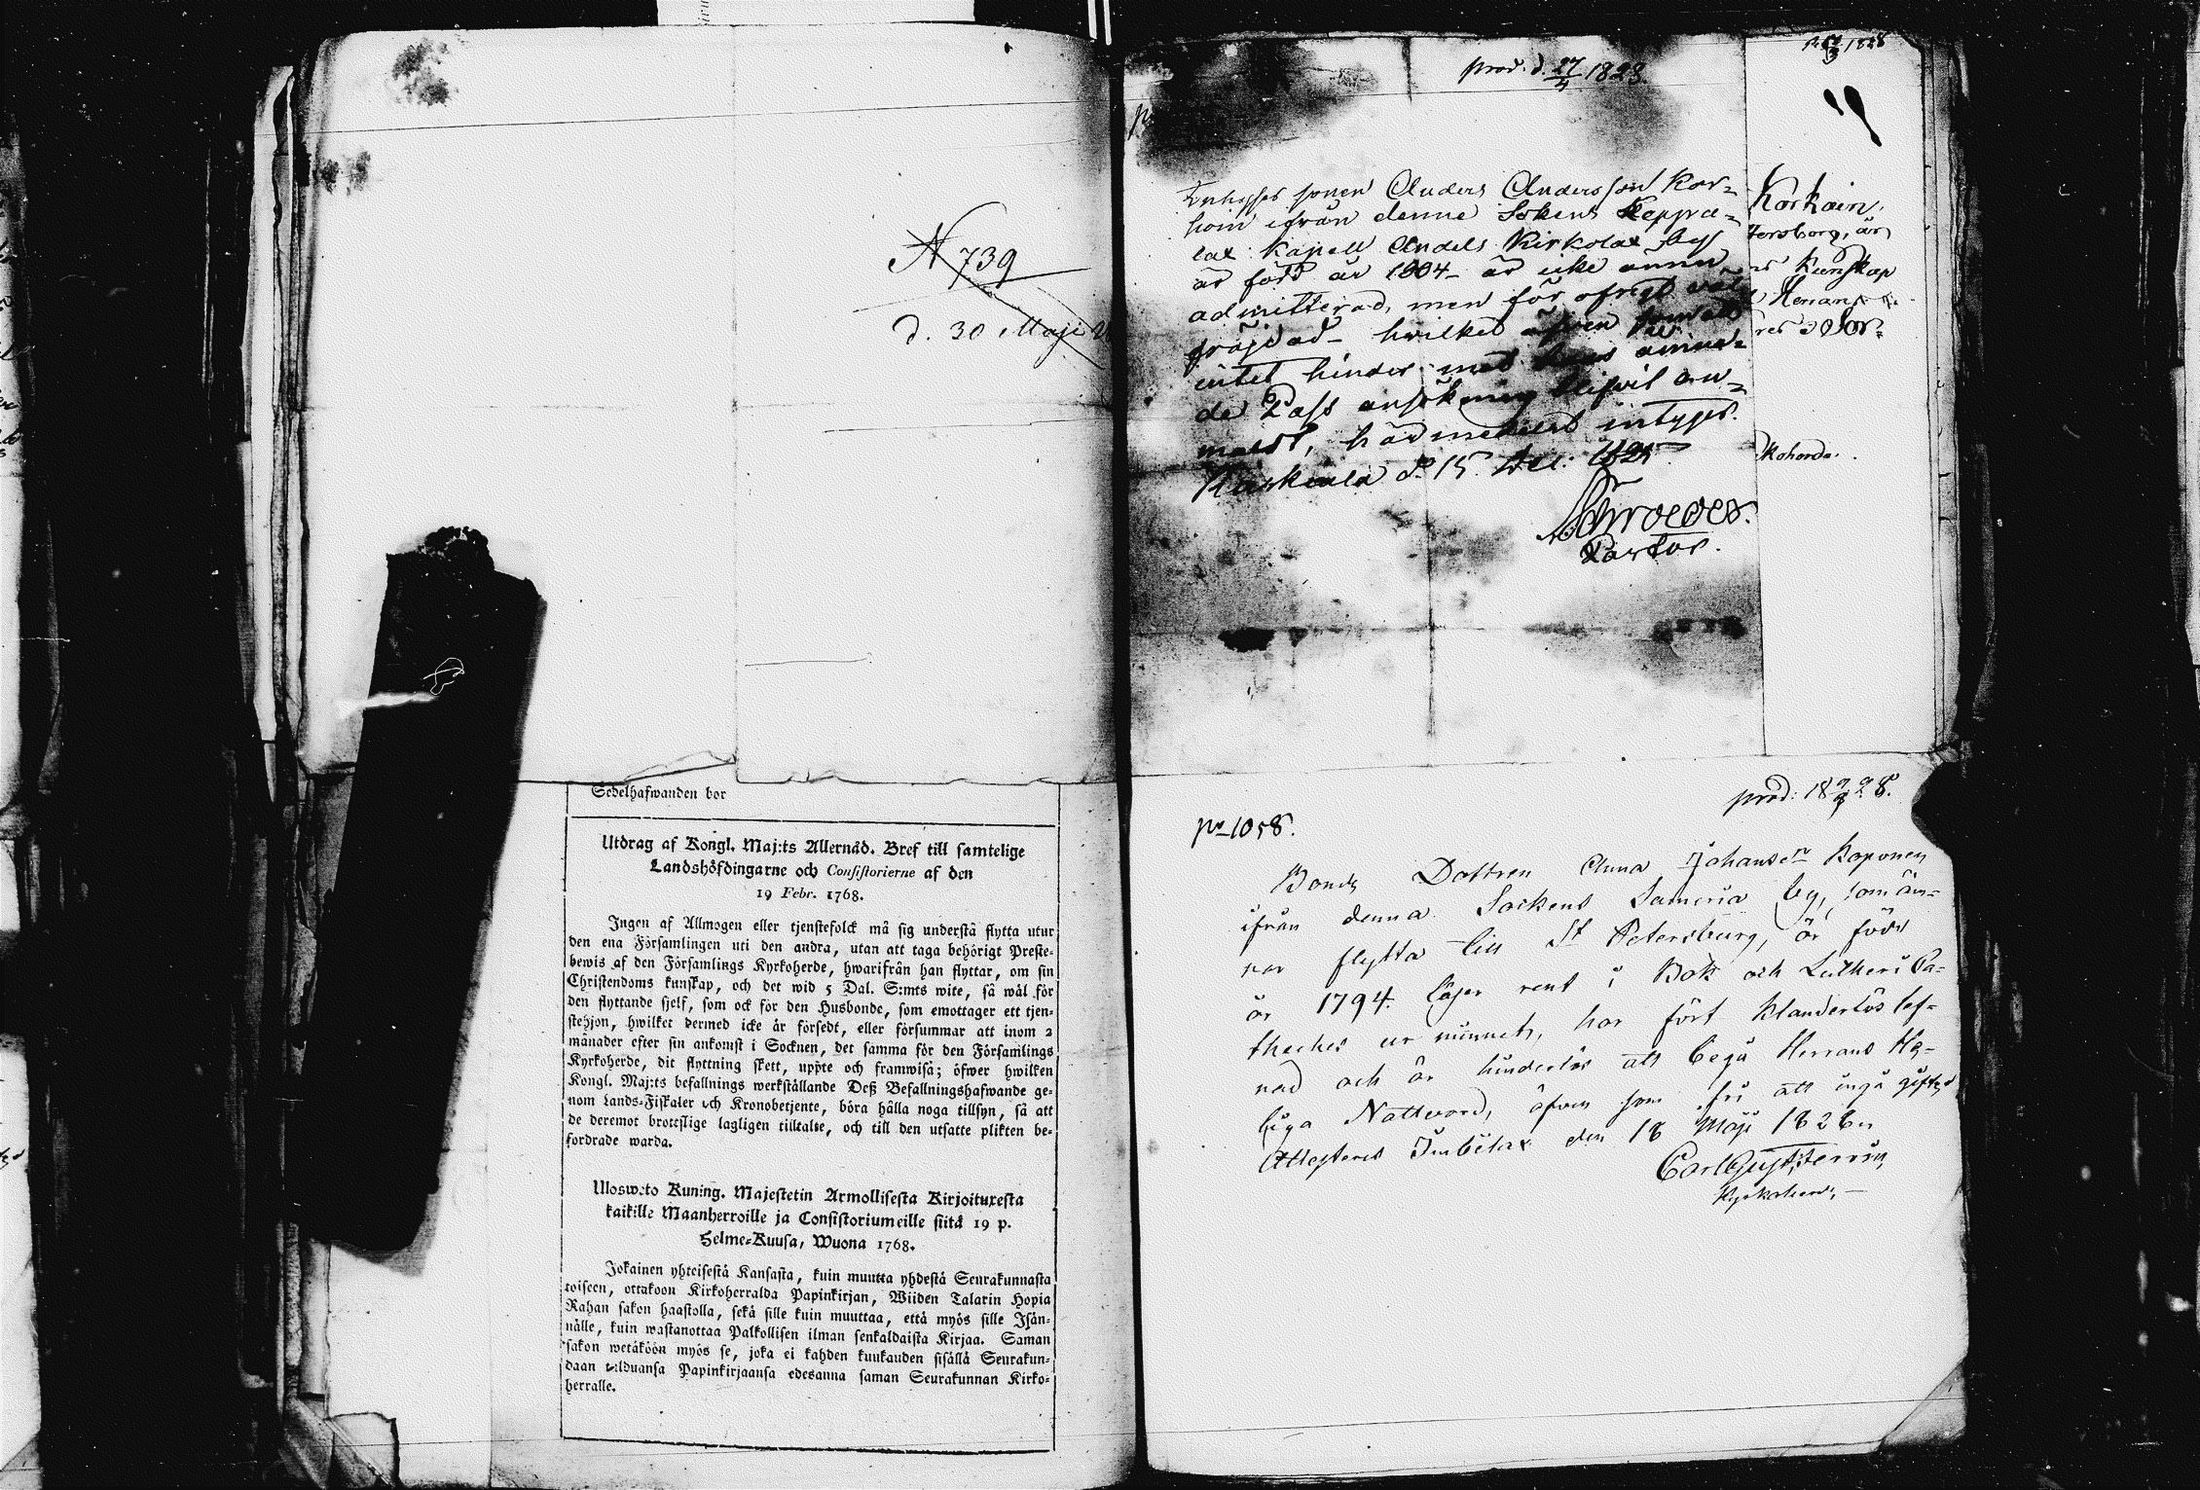 N 739
d. 30 Maji
Sedelhafwanden bor
Utdrag af Kongl. Maj:ts Allernåd. Bref till samtelige
Landshöfdingarne och Consistorierne af den
19 Febr. 1768.
Ingen af Allmogen eller tjenstefolck må sig understå flytta utur
den ena Församlingen uti den andra, utan att taga behörigt Preste-
bewis af den Församlings Kyrkoherde, hwarifrån han flyttar, om sin
Christendoms kunskap, och det wid 5 Dal. S:mts wite, så wäl för
den flyttande sjelf, som ock för den Husbonde, som emottager ett tjen-
stehjon, hwilket dermed icke är försedt, eller försummar att inom 2
månader efter sin ankomst i Socknen, det samma för den Församlings
Kyrkoherde, dit flyttning skett, uppte och framwisa; öfwer hwilken
Kongl. Maj:ts befallnings werkställande Deß Befallningshafwande ge-
nom Lands-Fiskaler och Kronobetjente, böra hålla noga tillsyn, så att
de deremot brottslige lagligen tilltalte, och till den utsatte plikten be-
fordrade warda.
Uloswето Kuning. Majestetin Armollisesta Kirjoituxesta
kaikille Maanherroille ja Consistoriumeille siitä 19 p.
Helme-Kuusa, Wuona 1768.
Jokainen yhteisestä Kansasta, kuin muutta yhdestä Seurakunnasta
toiseen, ottakoon Kirkoherralda Papinkirjan, Wiiden Talarin Hopia
Rahan sakon haastolla, sekä sille kuin muuttaa, että myös sille Isän-
nälle, kuin wastanottaa Palkollisen ilman senkaldaista Kirjaa. Saman
sakon wetäköön myös se, joka ei kahden kuukauden sisällä Seurakun-
daan tulduansa Papinkirjaansa edesanna saman Seurakunnan Kirko-
herralle.
prod. d. 27/4 1828.
1828
sonen Anders Andersson Kor-
hoin ifrån denne Sokens Keppra-
lax Kapell Andels Kirkolax by
är född år 1804 är icke ännu
admitterad, men för öfrigt väl
fräjdad hvilket äfven som att
intet hinder mot hans ämna-
de Pass ansökning blifvit an-
mäldt, härmedelst intygar.
d. 15
Schroeder.
Pastor.
Korkoin,
tersborg, är
Kunskap
Herrans
prod: 18 28.
No 1058.
Bonde Dottren Anna Johansdr Koponen
ifrån denna Sockens Sameria by, som äm-
nar flytta till St Petersburg, är född
år 1794. läser rent i Bok och Lutheri Ca-
theches ur minnet, har fört klanderlös lef-
nad och är hinderlös att begå Herrans He-
liga Nattvard, äfven som fri att ingå gifte,
Attesteras Imbilax den 18 Maji 1828
Carl Gust.
Kyrkoherde